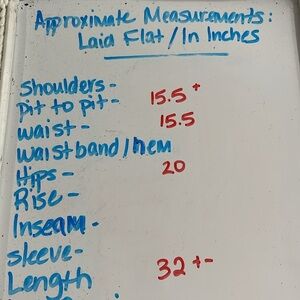 Approximate Measurements:
Laid Flat/In Inches
Shoulders-
Pit to pit- 15.5 +
Waist- 15.5
Waistband/hem
Hips- 20
Rise-
Inseam-
sleeve-
Length 32 +-